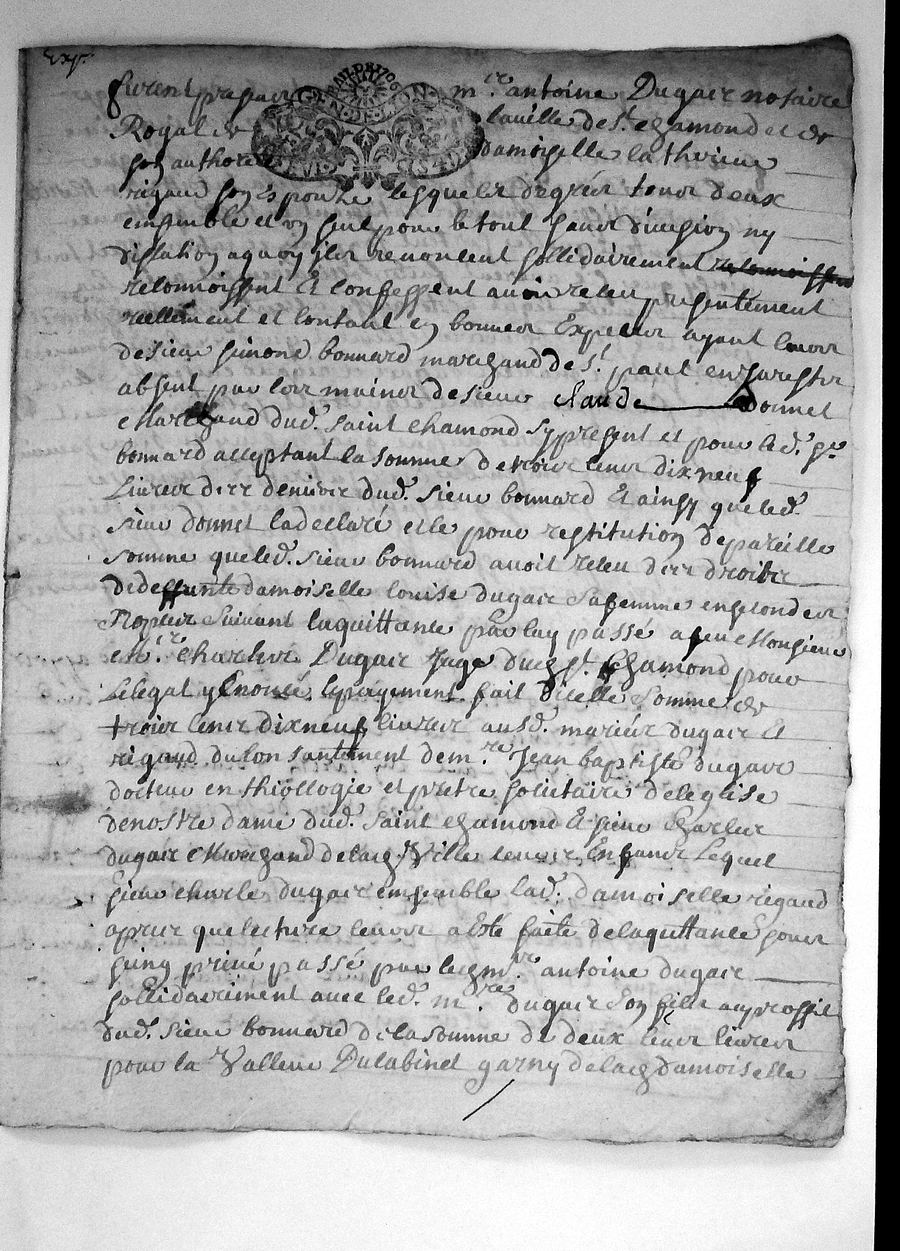 Exp.
furent present mre. antoine Dugair notaire
Royal de la ville de st. chamond et de
son authorite damoiselle Catherine
rigaud son espouze lesquelz de gréér tour deux
ensemble et un seul pour le tout sans division ny
discution a quoy ilz renoncent sollidairement
reconnoissent et confessent avoir receu presentement
reellement et contant en bonnes Especes ayant cours
de sieur simond bonnard marchand de st. paul en jarestz
absent par les mains de sieur claude donnet
Marchand dud. saint chamond sy present et pour led. sr.
bonnard acceptant la somme de trois cens dix neuf
Livres des deniers dud. sieur bonnard et ainsy que led.
sieur donnet la declaré et ce pour restitution de pareille
somme que led. sieur bonnard avoit receu des droitz
de deffunte damoiselle louise dugair sa femme
suivant la quittance par luy passé a feu Monsieur
Mre. Charles Dugair Juge dud. st. Chamond pour
Le legat y Enoncé, le payement fait dicelle somme de
trois cens dix neuf livres ausd. mariés dugair et
rigaud du consantement de mre. Jean baptiste dugair
docteur en thiollogie et prêtre socictaire de leglise
de nostre dame dud. saint chamond Et sieur charles
dugair Marchand de lad. Ville leurs Enfans Lequel
sieur charle dugair ensemble lad. damoiselle rigaud
apres que lecture leurs a esté faite de la quittance sous
sing privé passé par led. mre. antoine dugair
sollidairiment avec led. mre. dugair son fils au proffit
dud. sieur bonnard de la somme de deux cens livres
pour la Valleur Du cabinet garny de lad. damoiselle
GEN. DE LYON